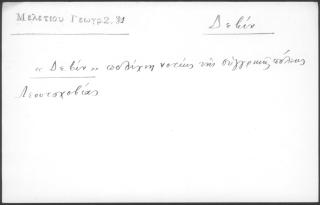 Μελετίου Γεωγρ 2, 81
Δεβίν
« Δεβίν » πολίχνη νοτίως τῆς οὑγγρικῆς πόλεως
Λεουτσχοβίας